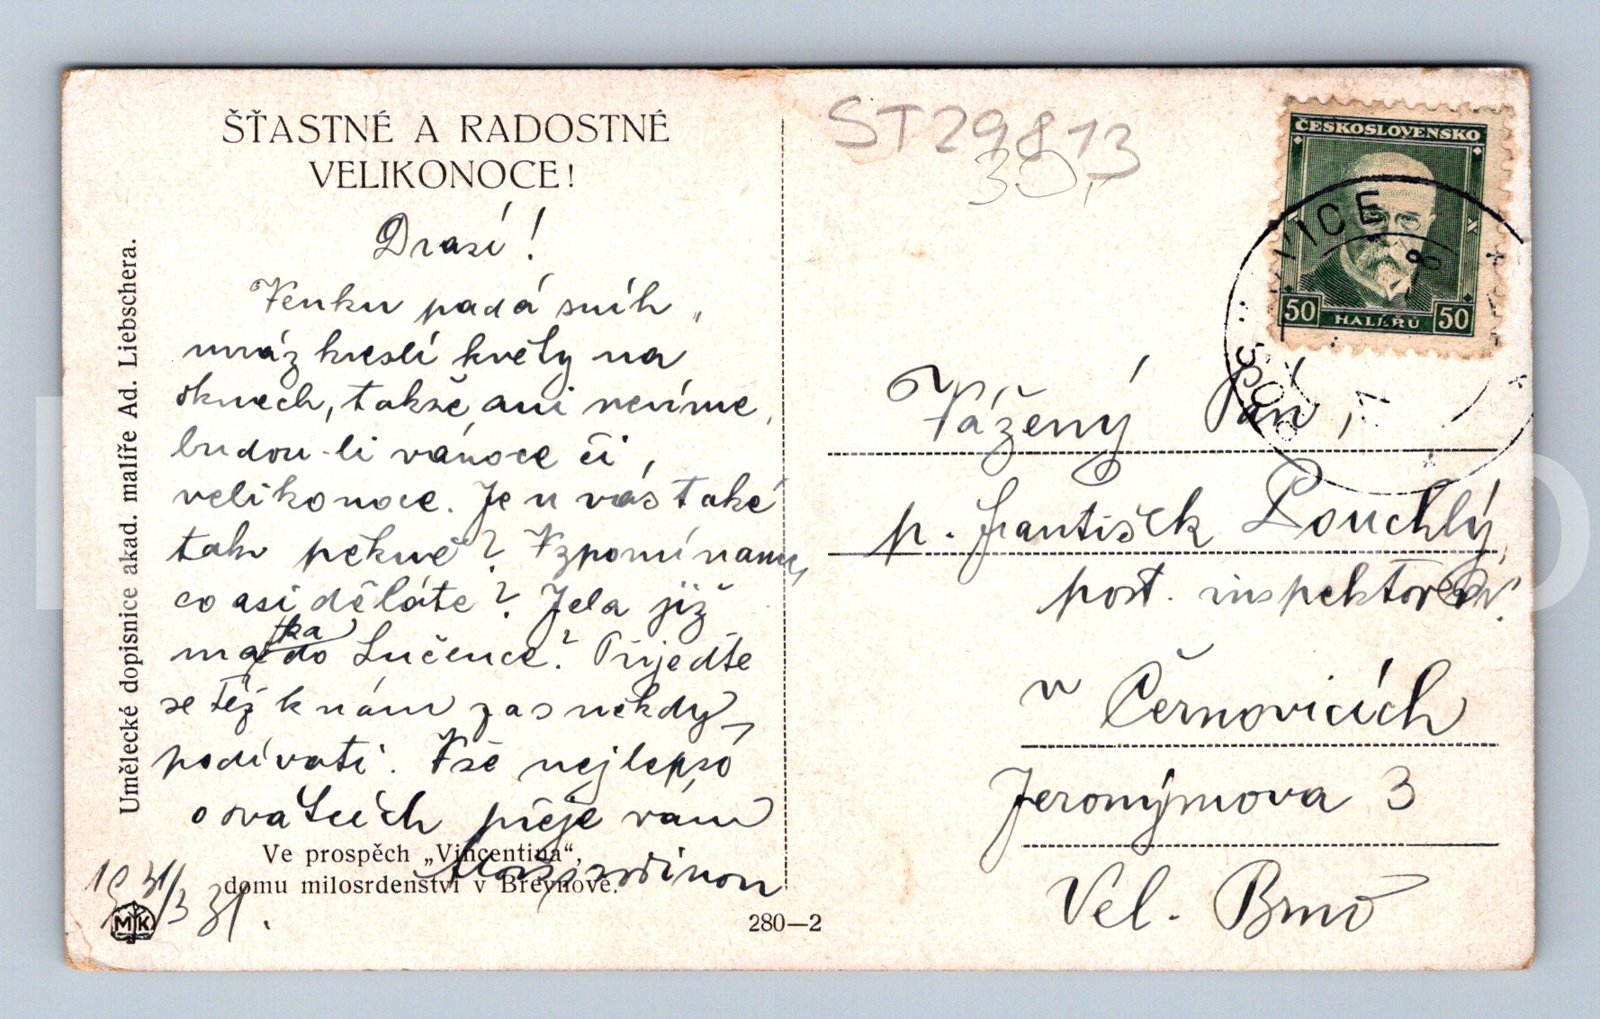 ŠŤASTNÉ A RADOSTNÉ
VELIKONOCE!
Drazí!
Venku padá sníh,
mráz kreslí květy na
oknech, takže ani nevíme,
budou-li vánoce či
velikonoce. Je u vás také
tak pěkně? Vzpomínamy,
co asi děláte? Jela již
matka do Lučence? Přijeďte
se též k nám zas někdy
podívati. Vše nejlepšó
o svátcích přeje vám
Ve prospěch „Vincentina“,
domu milosrdenství v Břevnově.
31/3 31.
MK
280—2
Umělecké dopisnice akad. malíře Ad. Liebschera.
ST29813
30,-
ČESKOSLOVENSKO
50 HALÉŘŮ 50
VICE
Vážený Pán,
p. František Pouchlý,
post. inspektor
v Černovicích
Jeronýmova 3
Vel. Brno